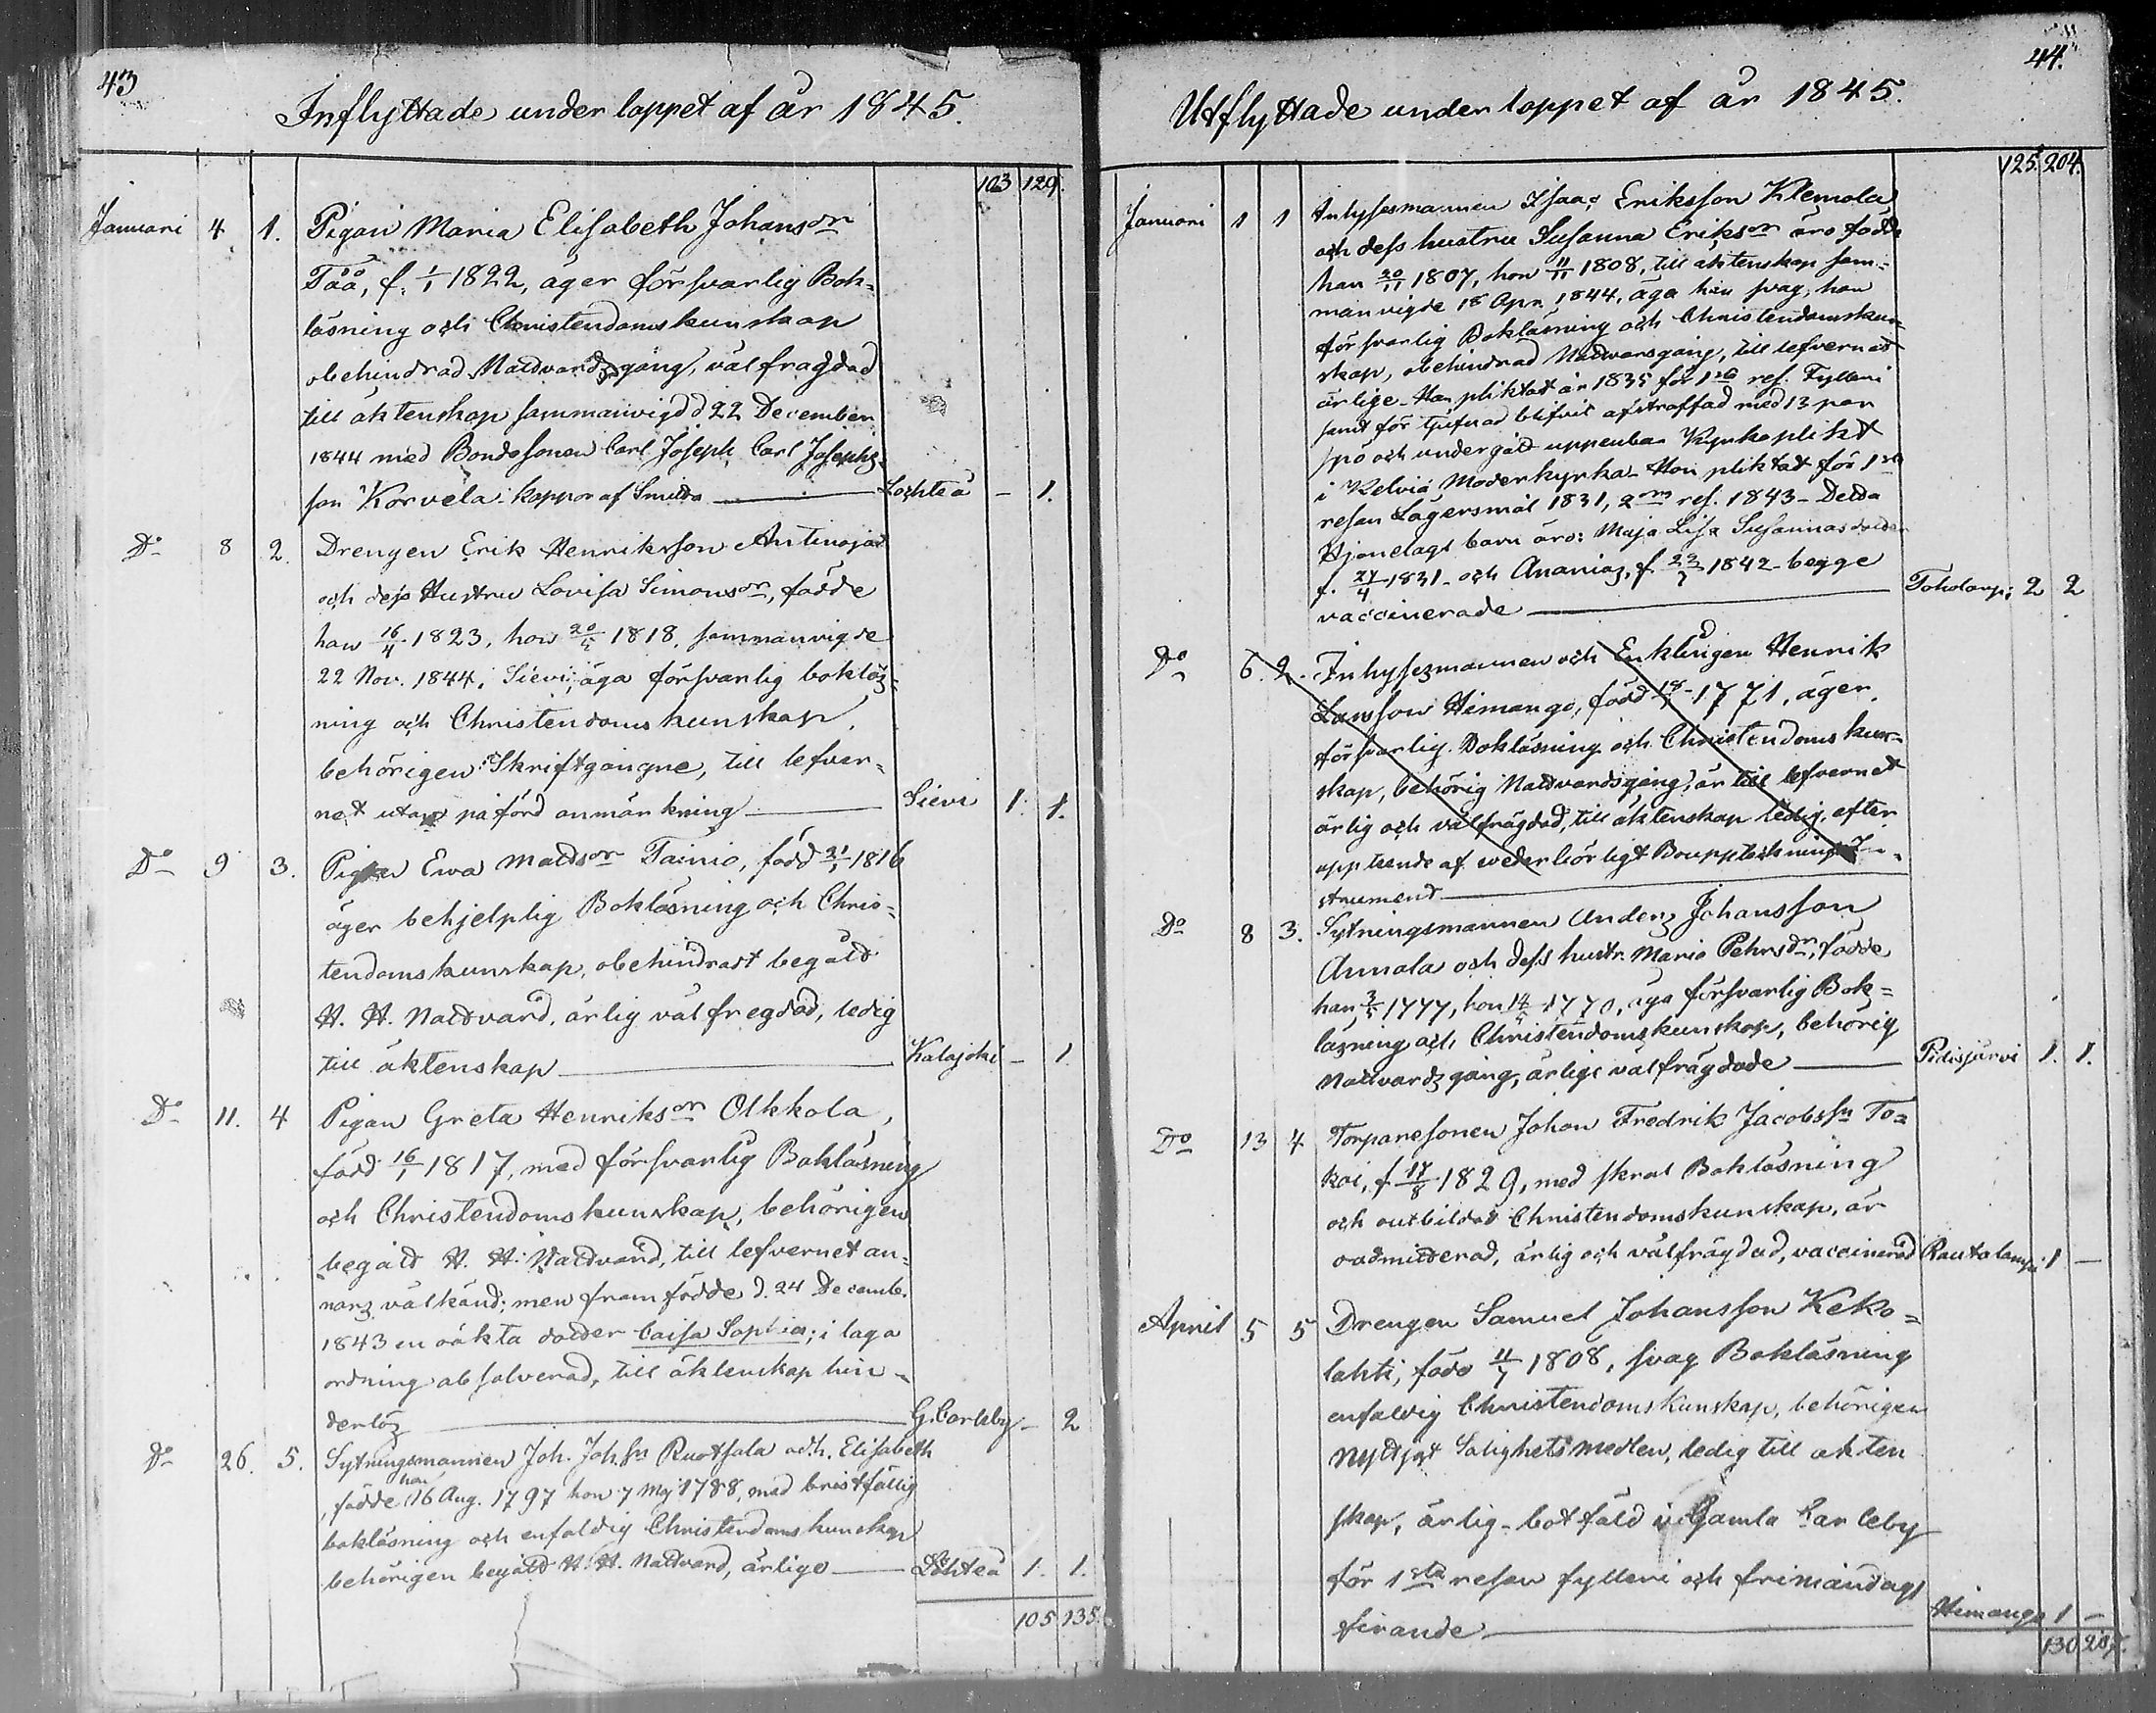 43
Inflyttade under loppet af år 1845.
103 129.
Januari 4 1. Pigan Maria Elisabeth Johansdr
Tåå, f. 1/1 1822, äger försvarlig Bok-
läsning och Christendomskunskap
obehindrad Nattvardsgång, välfrägdad
till äktenskap sammanvigd d 22 December
1844 med Bondesonen Carl Joseph Carl Josephs-
son Korvela. koppor af Smitta — Lochteå — 1.
Do 8 2. Drengen Erik Henriksson Antinoja
och dess Hustru Lovisa Simonsdr, födde
han 16/4 1823, hon 20/5 1818, sammanvigde
22 Nov. 1844 i Sievi, äga försvarlig bokläs-
ning och Christendomskunskap,
behörigen Skriftgångne, till lefver-
net utan påförd anmärkning — Sievi 1. 1.
Do 9 3. Pigan Ewa Mattsdr Tainio, född 21/1 1816
äger behjelplig Bokläsning och Chris-
tendomskunskap, obehindrat begått
H. H. Nattvard, ärlig välfregdad, ledig
till äktenskap — Kalajoki — 1.
Do 11. 4 Pigan Greta Henriksdr Olkkola,
född 16/1 1817, med försvarlig Bokläsning
och Christendomskunskap, behörigen
begått H. H. Nattvard, till lefvernet an-
nars välkänd; men framfödde d. 24 Decemb.
1843 en oäkta dotter Caisa Sophia; i laga
ordning absolverad, till äktenskap hin-
derlös — G. Carleby — 2
Do 26. 5. Sytningsmannen Joh. Johsn Ruotsala och h. Elisabeth
, födde han 16 Aug. 1797 hon 7 Maj 1788, med bristfällig
bokläsning och enfaldig Christendomskunskap
behörigen begått H. H. Nattvard, ärlige — Lohteå 1. 1.
105 135.
44.
Utflyttade under loppet af år 1845.
125. 204.
Januari 1 1 Inhysesmannen Isaac Eriksson Klemola
och dess hustru Susanna Eriksdr äro födde
han 20/11 1807, hon 11/11 1808, till äktenskap sam-
manvigde 18 Apr. 1844, äga hon svag, han
försvarlig Bokläsning och Christendomskun-
skap, obehindrad Nattvardsgång, till lefvernet
ärlige. Han pliktat år 1835 för 1sta res. Fylleri
samt för tjufnad blifvit afstraffad med 13 par
spö och undergått uppenbar Kyrkoplikt
i Kelviå Moderkyrka. Hon pliktat för 1sta
resan Lägersmål 1831, 2dra res. 1843 – Detta
Hjonelags barn äro: Maja Lisa Susannas dotter
f. 27/4 1831 och Ananias, f. 22/7 1842 – begge
vaccinerade — Toholamp: 2 2
Do 6. 2. Inhysesmannen och Enklingen Henrik
Larsson Himango, född 18/ 1771, äger
försvarlig Bokläsning och Christendomskun-
skap, behörig Nattvardsgång, är till lefvernet
ärlig och välfrägdad, till äktenskap ledig, efter
uppteende af vederbörligt Bouppteckningsin-
strument —
Do 8 3. Sytningsmannen Anders Johansson
Annala och dess hustr. Maria Pehrsdr, födde
han 3/5 1777, hon 14/5 1770, äga försvarlig Bok-
läsning och Christendomskunskap, behörig
Nattvardsgång, ärlige välfrägdade — Pidisjärvi 1. 1.
Do 13 4 Torparesonen Johan Fredrik Jacobssn To-
koi, f 17/8 1829, med skral Bokläsning
och outbildad Christendomskunskap, är
oadmitterad, ärlig och välfrägdad, vaccinerad Rautalampi 1 —
April 5 5 Drengen Samuel Johansson Keko-
lahti, född 11/7 1808, svag Bokläsning
enfaldig Christendomskunskap, behörigen
nyttjat Salighetsmedlen, ledig till äkten
skap, ärlig – botfäld i Gamla Carleby
för 1sta resan fylleri och frimåndags
firande — Himango 1 —
130 207.